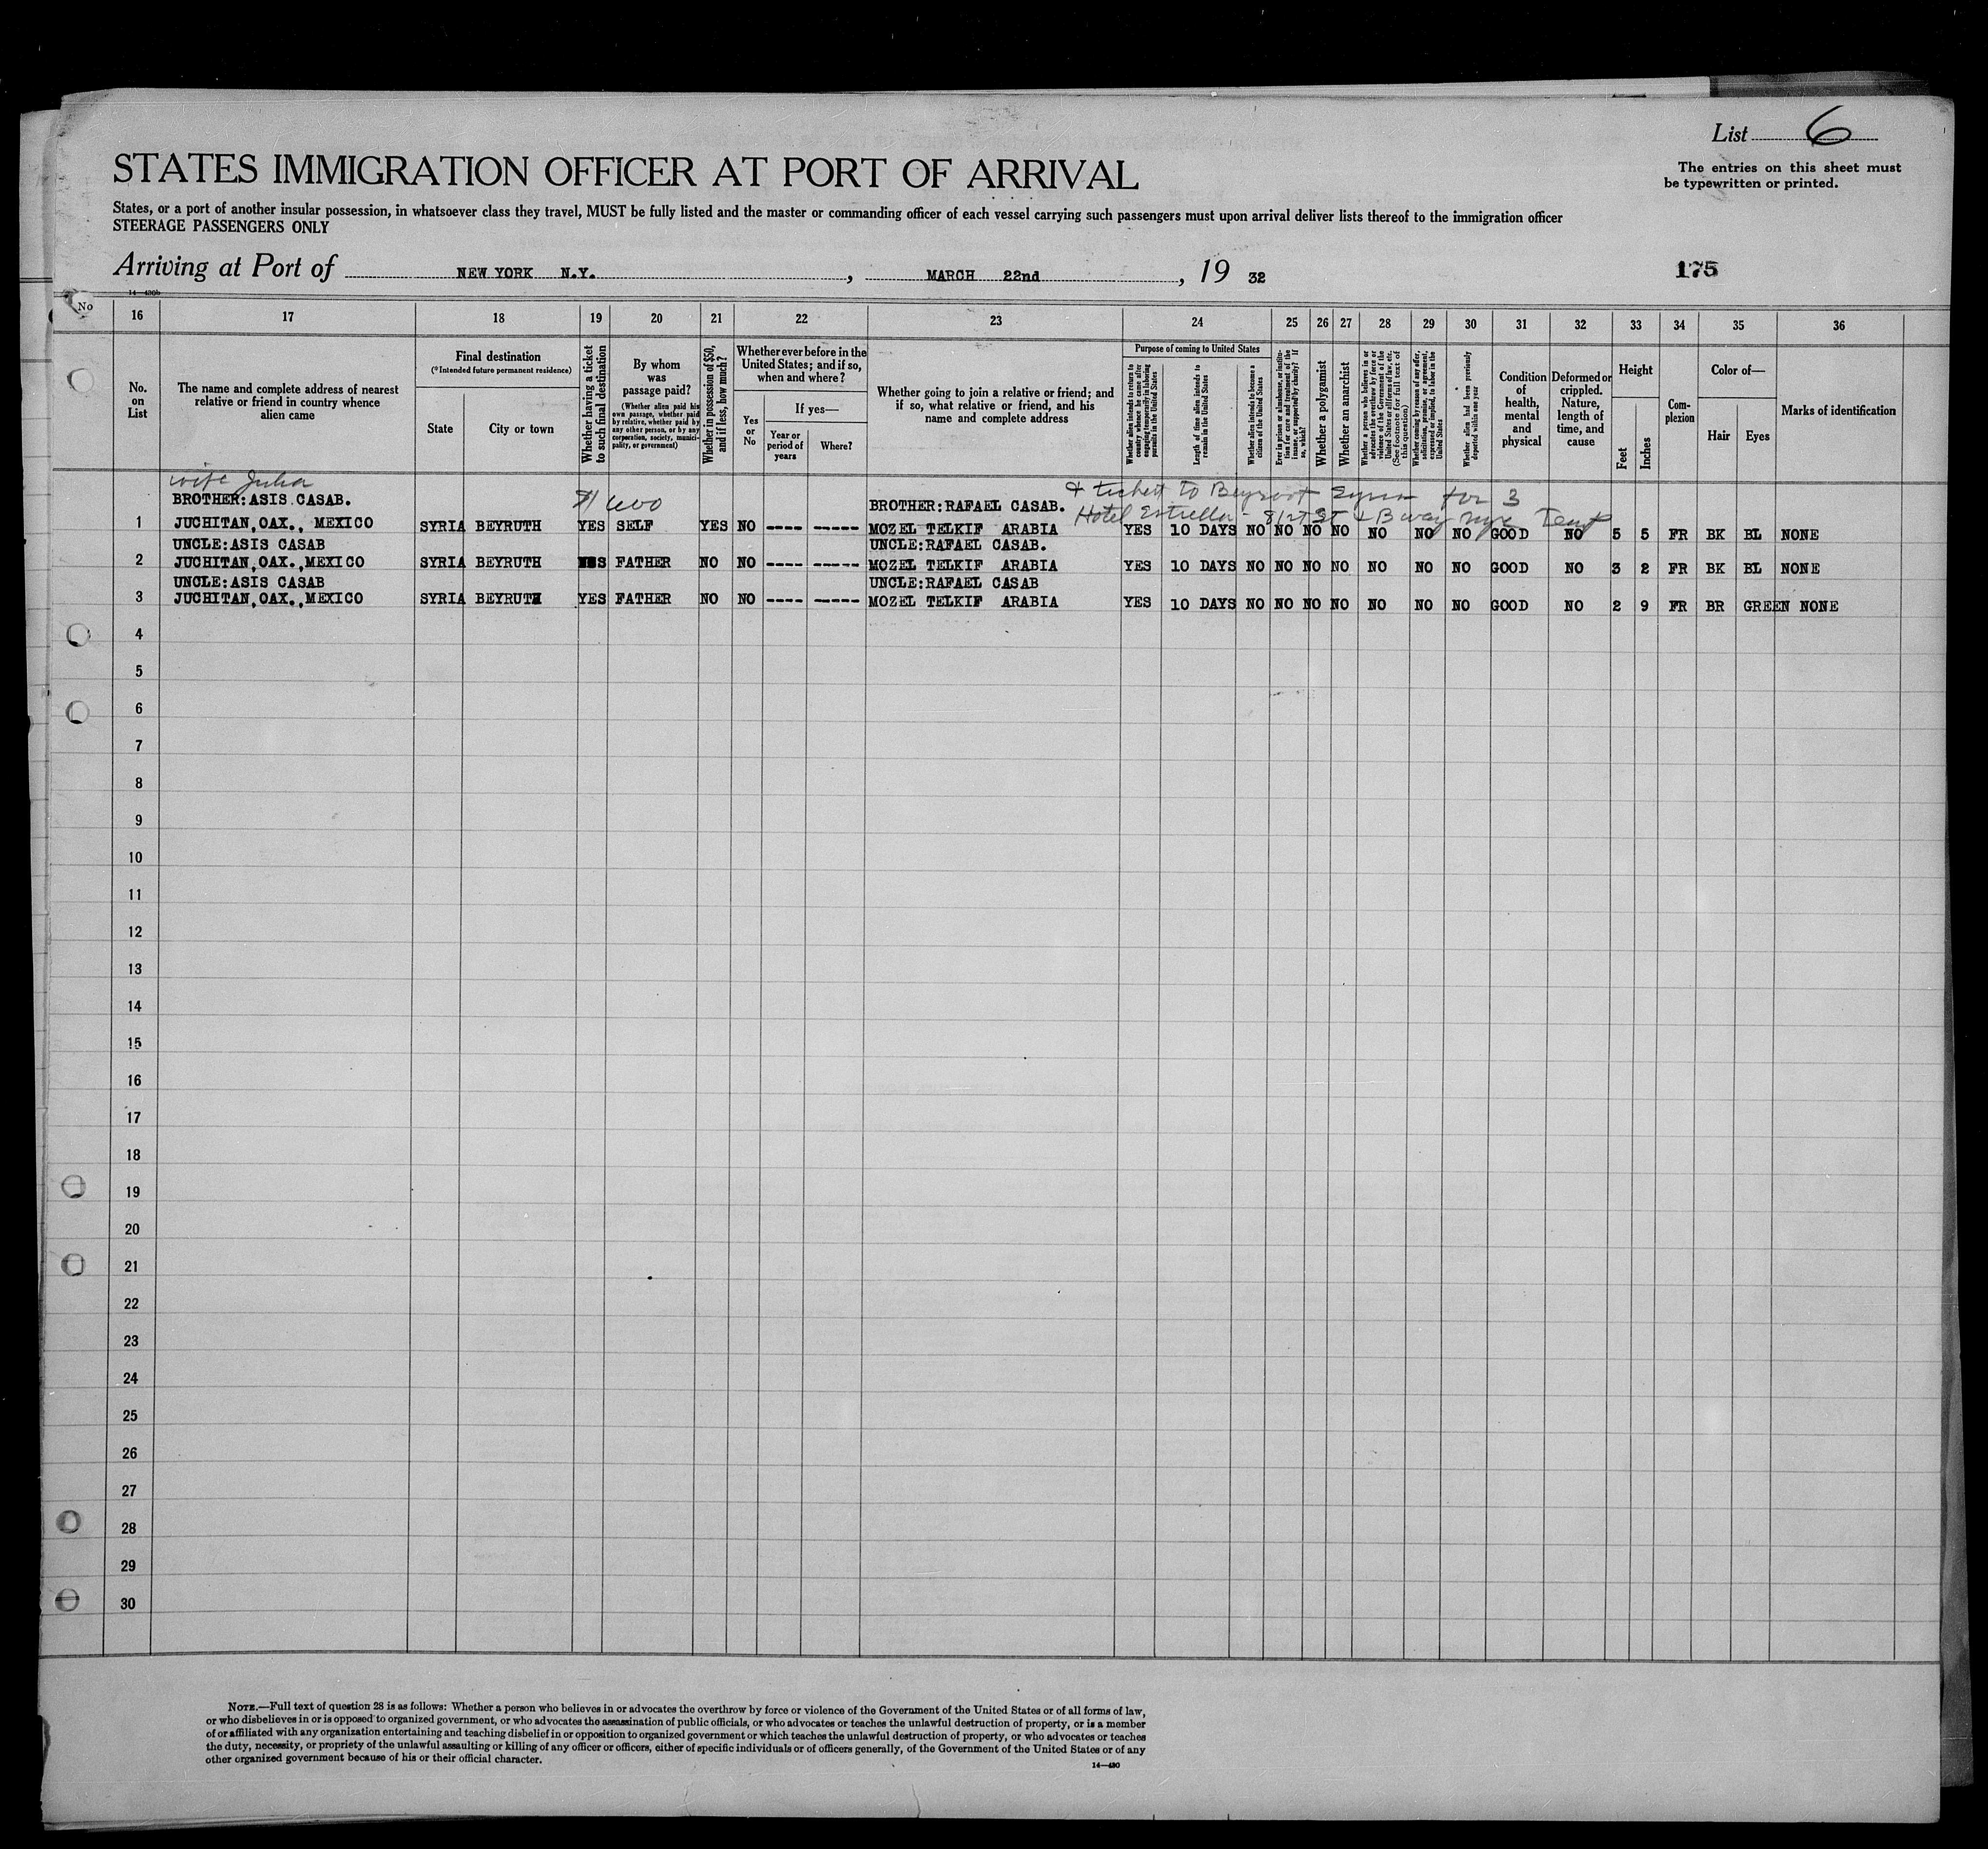 List 6
The entries on this sheet must
be typewritten or printed.
STATES IMMIGRATION OFFICER AT PORT OF ARRIVAL
States, or a port of another insular possession, in whatsoever class they travel, MUST be fully listed and the master or commanding officer of each vessel carrying such passengers must upon arrival deliver lists thereof to the immigration officer
STEERAGE PASSENGERS ONLY
Arriving at Port of NEW YORK N.Y. , MARCH 22nd , 19 32
175
14—430b
No
16 17 18 19 20 21 22 23 24 25 26 27 28 29 30 31 32 33 34 35 36
No.
on
List
The name and complete address of nearest
relative or friend in country whence
alien came
Final destination
(*Intended future permanent residence)
State
City or town
Whether having a ticket
to such final destination
By whom
was
passage paid?
(Whether alien paid his
own passage, whether paid
by relative, whether paid by
any other person, or by any
corporation, society, munici-
pality, or government)
Whether in possession of $50,
and if less, how much?
Whether ever before in the
United States; and if so,
when and where?
Yes
or
No
If yes—
Year or
period of
years
Where?
Whether going to join a relative or friend; and
if so, what relative or friend, and his
name and complete address
Purpose of coming to United States
Whether alien intends to return to
country whence he came after
engaging temporarily in laboring
pursuits in the United States
Length of time alien intends to
remain in the United States
Whether alien intends to become a
citizen of the United States
Ever in prison or almshouse, or institu-
tion for care and treatment of the
insane, or supported by charity? If
so, which?
Whether a polygamist
Whether an anarchist
Whether a person who believes in or
advocates the overthrow by force or
violence of the Government of the
United States or all forms of law, etc.
(See footnote for full text of
this question)
Whether coming by reason of any offer,
solicitation, promise, or agreement,
expressed or implied, to labor in the
United States
Whether alien had been previously
deported within one year
Condition
of
health,
mental
and
physical
Deformed or
crippled.
Nature,
length of
time, and
cause
Height
Feet
Inches
Com-
plexion
Color of—
Hair
Eyes
Marks of identification
wife Julia
$1600
& ticket to Beyroot Syria for 3
BROTHER:ASIS CASAB. BROTHER:RAFAEL CASAB.
Hotel Estrella - St & Bway nyc Temp
1 JUCHITAN,OAX., MEXICO SYRIA BEYRUTH YES SELF YES NO ---- ----- MOZEL TELKIF ARABIA YES 10 DAYS NO NO NO NO NO NO NO GOOD NO 5 5 FR BK BL NONE
UNCLE:ASIS CASAB UNCLE:RAFAEL CASAB.
2 JUCHITAN,OAX.,MEXICO SYRIA BEYRUTH FATHER NO NO ---- ----- MOZEL TELKIF ARABIA YES 10 DAYS NO NO NO NO NO NO NO GOOD NO 3 2 FR BK BL NONE
UNCLE:ASIS CASAB UNCLE:RAFAEL CASAB
3 JUCHITAN,OAX.,MEXICO SYRIA BEYRUTH YES FATHER NO NO ---- ----- MOZEL TELKIF ARABIA YES 10 DAYS NO NO NO NO NO NO NO GOOD NO 2 9 FR BR GREEN NONE
4
5
6
7
8
9
10
11
12
13
14
15
16
17
18
19
20
21
22
23
24
25
26
27
28
29
30
NOTE.—Full text of question 28 is as follows: Whether a person who believes in or advocates the overthrow by force or violence of the Government of the United States or of all forms of law,
or who disbelieves in or is opposed to organized government, or who advocates the assassination of public officials, or who advocates or teaches the unlawful destruction of property, or is a member
of or affiliated with any organization entertaining and teaching disbelief in or opposition to organized government or which teaches the unlawful destruction of property, or who advocates or teaches
the duty, necessity, or propriety of the unlawful assaulting or killing of any officer or officers, either of specific individuals or of officers generally, of the Government of the United States or of any
other organized government because of his or their official character.
14—430